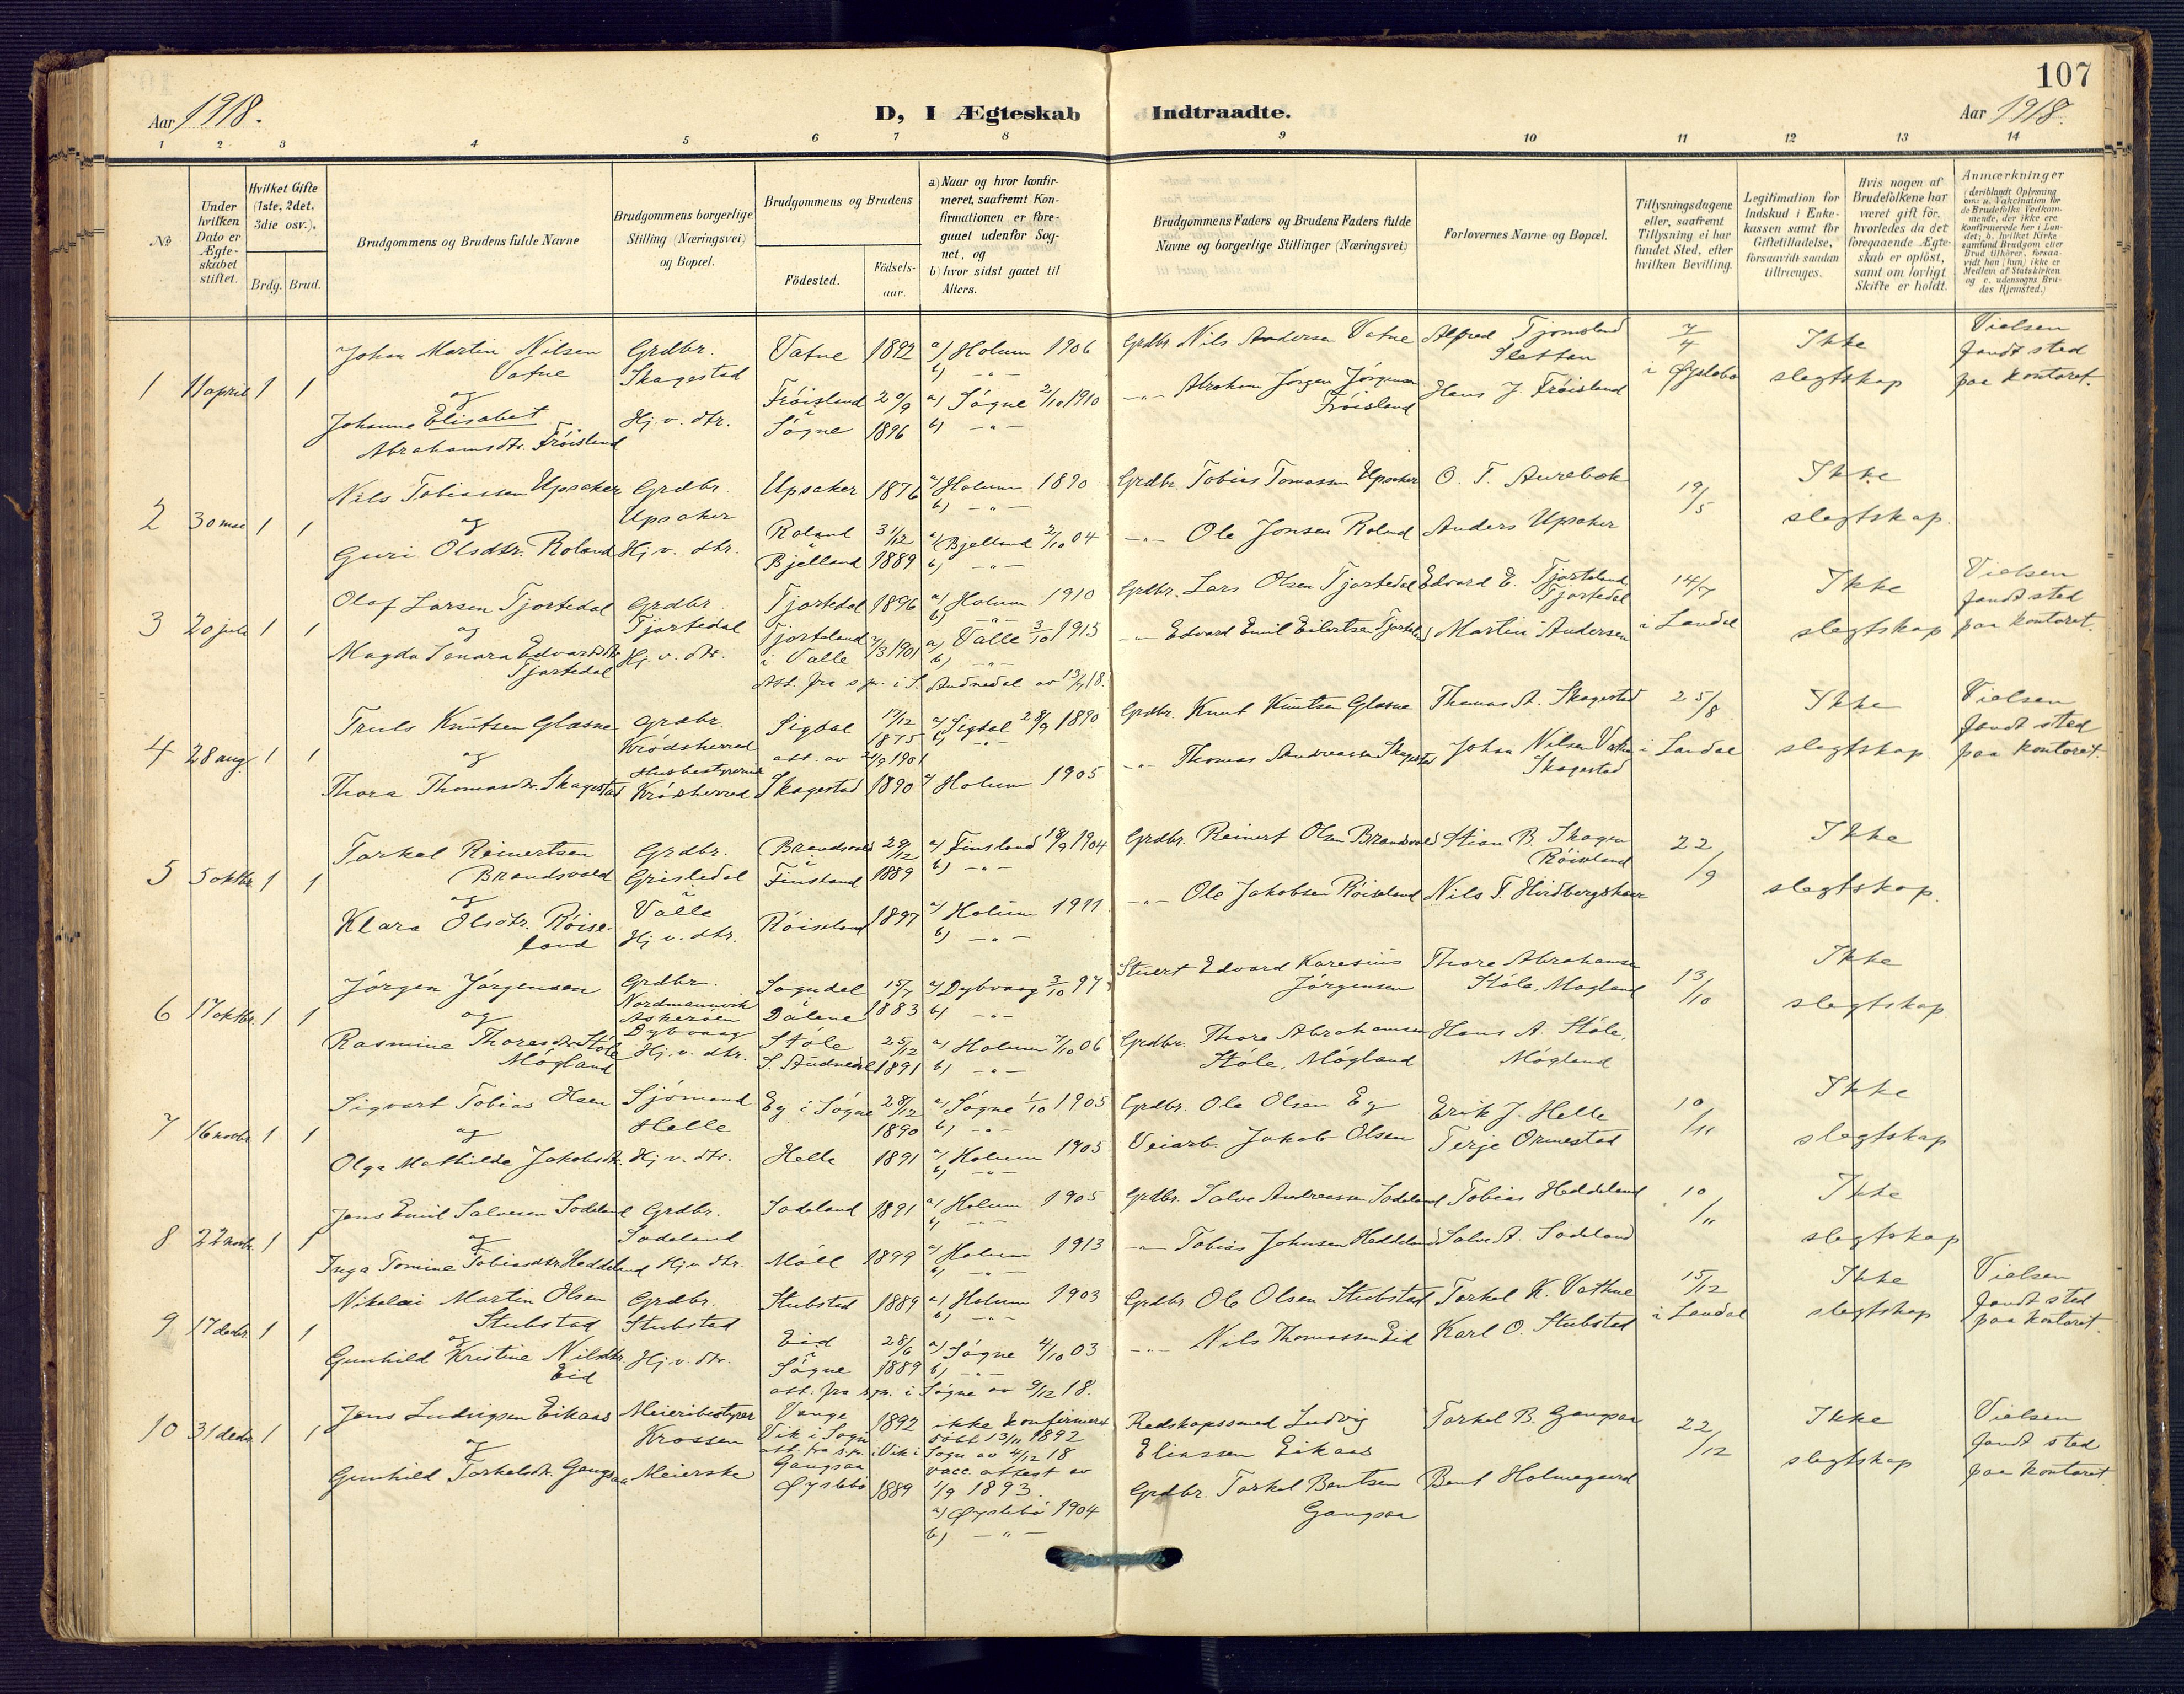 107
Aar 1918.
D, I Ægteskab Indtraadte.
Aar 1918.
1 2 3 4 5 6 7 8 9 10 11 12 13 14
No
Under hvilken Dato er Ægteskabet stiftet.
Hvilket Gifte (1ste, 2det, 3die osv.).
Brdg. Brud.
Brudgommens og Brudens fulde Navne
Brudgommens borgerlige Stilling (Næringsvei) og Bopæl.
Brudgommens og Brudens
Födested.
Födsels-aar.
a) Naar og hvor konfirmeret, saafremt Konfirmationen er foregaaet udenfor Sognet, og
b) hvor sidst gaaet til Alters.
Brudgommens Faders og Brudens Faders fulde Navne og borgerlige Stillinger (Næringsvei)
Forlovernes Navne og Bopæl.
Tillysningsdagene eller, saafremt Tillysning ei har fundet Sted, efter hvilken Bevilling.
Legitimation for Indskud i Enkekassen samt for Giftetilladelse, forsaavidt saadan tiltrænges.
Hvis nogen af Brudefolkene har været gift för, hvorledes da det foregaaende Ægteskab er oplöst, samt om lovligt Skifte er holdt.
Anmærkninger (deriblandt Oplysning om: a. Vakcination for de Brudefolks Vedkommende, der ikke ere konfirmerede her i Landet; b. hvilket Kirkesamfund Brudgom eller Brud tilhörer, forsaavidt han (hun) ikke er Medlem af Statskirken og c. udensogns Brudes Hjemsted.)
1 11 april 1 1
Johan Martin Nilsen Vatne
og
Johanne Elisabet Abrahamsdtr. Fröisland
Grdbr. Skagestad
Hj. v. dtr.
Vatne 1892 a) Holum 1906 b) -"-
Fröisland i Sögne 20/9 1896 a) Sögne 2/10 1910 b) -"-
Grdbr. Nils Andersen Vatne
-"- Abraham Jörgen Jörgensen Fröisland
Alfred Tjomsland Sletten
Hans J. Fröisland
7/4 i Öyslebö
Ikke slegtskap
Vielsen fandt sted paa kontoret.
2 30 mai 1 1
Nils Tobiassen Upsaker
og
Guri Olsdtr. Roland
Grdbr. Upsaker
Hj. v. dtr.
Upsaker 1876 a) Holum 1890 b) -"-
Roland i Bjelland 31/12 1889 a) Bjelland 2/10 04 b) -"-
Grdbr. Tobias Tomassen Upsaker
-"- Ole Jonsen Roland
O. T. Aurebek
Anders Upsaker
19/5
Ikke slegtskap.
3 20 juli 1 1
Olaf Larsen Tjortedal
og
Magda Lenora Edvardsdtr. Tjortedal
Grdbr. Tjortedal
Hj. v. dtr.
Tjortedal 1896 a) Holum 1910 b) -"-
Tjorteland i Valle 2/3 1901 a) Valle 3/10 1915 b) -"-
Att. fra s.pr. i S. Audnedal av 13/7 18.
Grdbr. Lars Olsen Tjortedal
-"- Edvard Emil Eilertsen Tjorteland
Edvard E. Tjorteland, Tjortedal
Martin Andersen
14/7 i Laudal
Ikke slegtskap
Vielsen fandt sted paa kontoret.
4 28 aug. 1 1
Truls Knutsen Glasne
og
Thora Thomasdtr. Skagestad
Grdbr. Krödsherred
Husbestyrerinde Krödsherred
Sigdal 17/12 1875 a) Sigdal 28/9 1890 b) -"-
att. av 24/9 1901
Skagestad 1890 a) Holum 1905
Grdbr. Knut Knutsen Glasne
-"- Thomas Andreassen Skagestad
Thomas A. Skagestad
Johan Nilsen Vatne Skagestad
25/8 i Laudal
Ikke slegtskap.
Vielsen fandt sted paa kontoret.
5 5 oktbr. 1 1
Torkel Reinertsen Brandsvold
og
Klara Olsdtr. Röiseland
Grdbr. Grisledal i Valle
Hj. v. dtr.
Brandsvold i Finsland 29/12 1889 a) Finsland 18/9 1904 b) -"-
Röiseland 1897 a) Holum 1911 b) -"-
Grdbr. Reinert Olsen Brandsvold
-"- Ole Jakobsen Röiseland
Stian B. Skagen Röiseland
Nils T. Hvidbergskaar
22/9
Ikke slegtskap.
6 17 oktbr. 1 1
Jörgen Jörgensen
og
Rasmine Thoresdtr. Stöle Mögland
Grdbr. Nordmannvik Askeröen Dybvaag
Hj. v. dtr.
Sogndal i Dalene 15/7 1883 a) Dybvaag 3/10 97 b) -"-
Stöle S. Audnedal 25/12 1891 a) Holum 7/10 06 b) -"-
Stuert Edvard Karesius Jörgensen
Grdbr. Thore Abrahamsen Stöle, Mögland
Thore Abrahamsen Stöle, Mögland
Hans A. Stöle, Mögland
13/10
Ikke slegtskap.
7 16 novbr. 1 1
Sigvart Tobias Olsen
og
Olga Mathilde Jakobsdtr.
Sjömand Helle
Hj. v. dtr.
Eg i Sögne 28/12 1890 a) Sögne 1/10 1905 b) -"-
Helle 1891 a) Holum 1905 b) -"-
Grdbr. Ole Olsen Eg
Veiarb. Jakob Olsen
Erik J. Helle
Terje Ormestad
10/11
Ikke slegtskap
8 22 novbr. 1 1
Jens Emil Salvesen Sodeland
og
Inga Tomine Tobiasdtr. Heddeland
Grdbr. Sodeland
Hj. v. dtr.
Sodeland 1891 a) Holum 1905 b) -"-
Möll 1899 a) Holum 1913 b) -"-
Grdbr. Salve Andreassen Sodeland
-"- Tobias Johnsen Heddeland
Tobias Heddeland
Salve A. Sodeland
10/11
Ikke slegtskap
9 17 decbr. 1 1
Nikolai Martin Olsen Stubstad
og
Gunhild Kristine Nilsdtr. Eid
Grdbr. Stubstad
Hj. v. dtr.
Stubstad 1889 a) Holum 1903 b) -"-
Eid i Sögne 28/6 1889 a) Sögne 4/10 03 b) -"-
att. fra s.pr. i Sögne av 9/12 18.
Grdbr. Ole Olsen Stubstad
-"- Nils Thomassen Eid
Torkel K. Vathne
Karl O. Stubstad
15/12 i Laudal
Ikke slegtskap
Vielsen fandt sted paa kontoret.
10 31 decbr. 1 1
Jens Ludvigsen Eikaas
og
Gunhild Torkelsdtr. Gangsaa
Meieribestyrer Krossen
Meierske
Vange Vik i Sogn 1892 ikke konfirmert döbt 13/11 1892
att. fra s.pr. i Vik i Sogn av 4/12 18
vacc. attest av 1/9 1893.
Gangsaa Öyslebö 1889 a) Öyslebö 1904 b) -"-
Redskapssmed Ludvig Eliassen Eikaas
Grdbr. Torkel Bentsen Gangsaa
Torkel B. Gangsaa
Bent Holmegaard
22/12
Ikke slegtskap
Vielsen fandt sted paa kontoret.